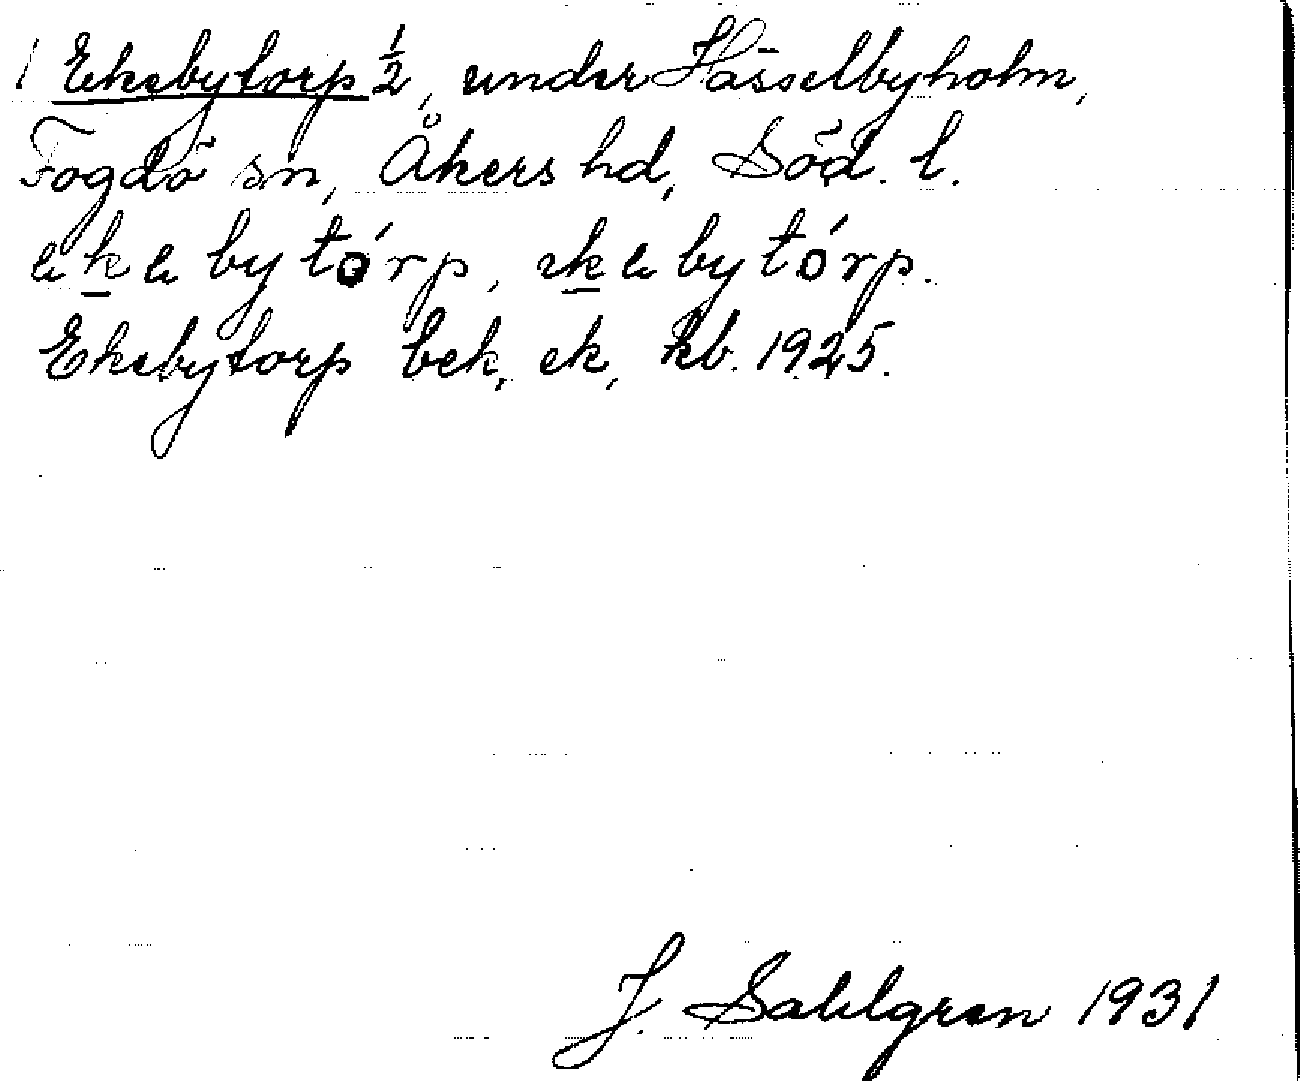 1 Ekebytorp 1/2, under Hässelbyholm,
Fogdö sn, Åkers hd, Söd. l.
ekebytórp, ekebytórp.
Ekebytorp bek, ek, kb. 1925.
J. Sahlgren 1931